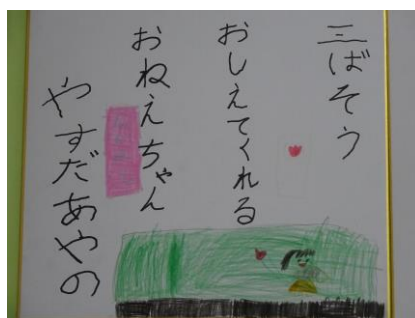 三ばそう
おしえてくれる
おねえちゃん
やすだあやの